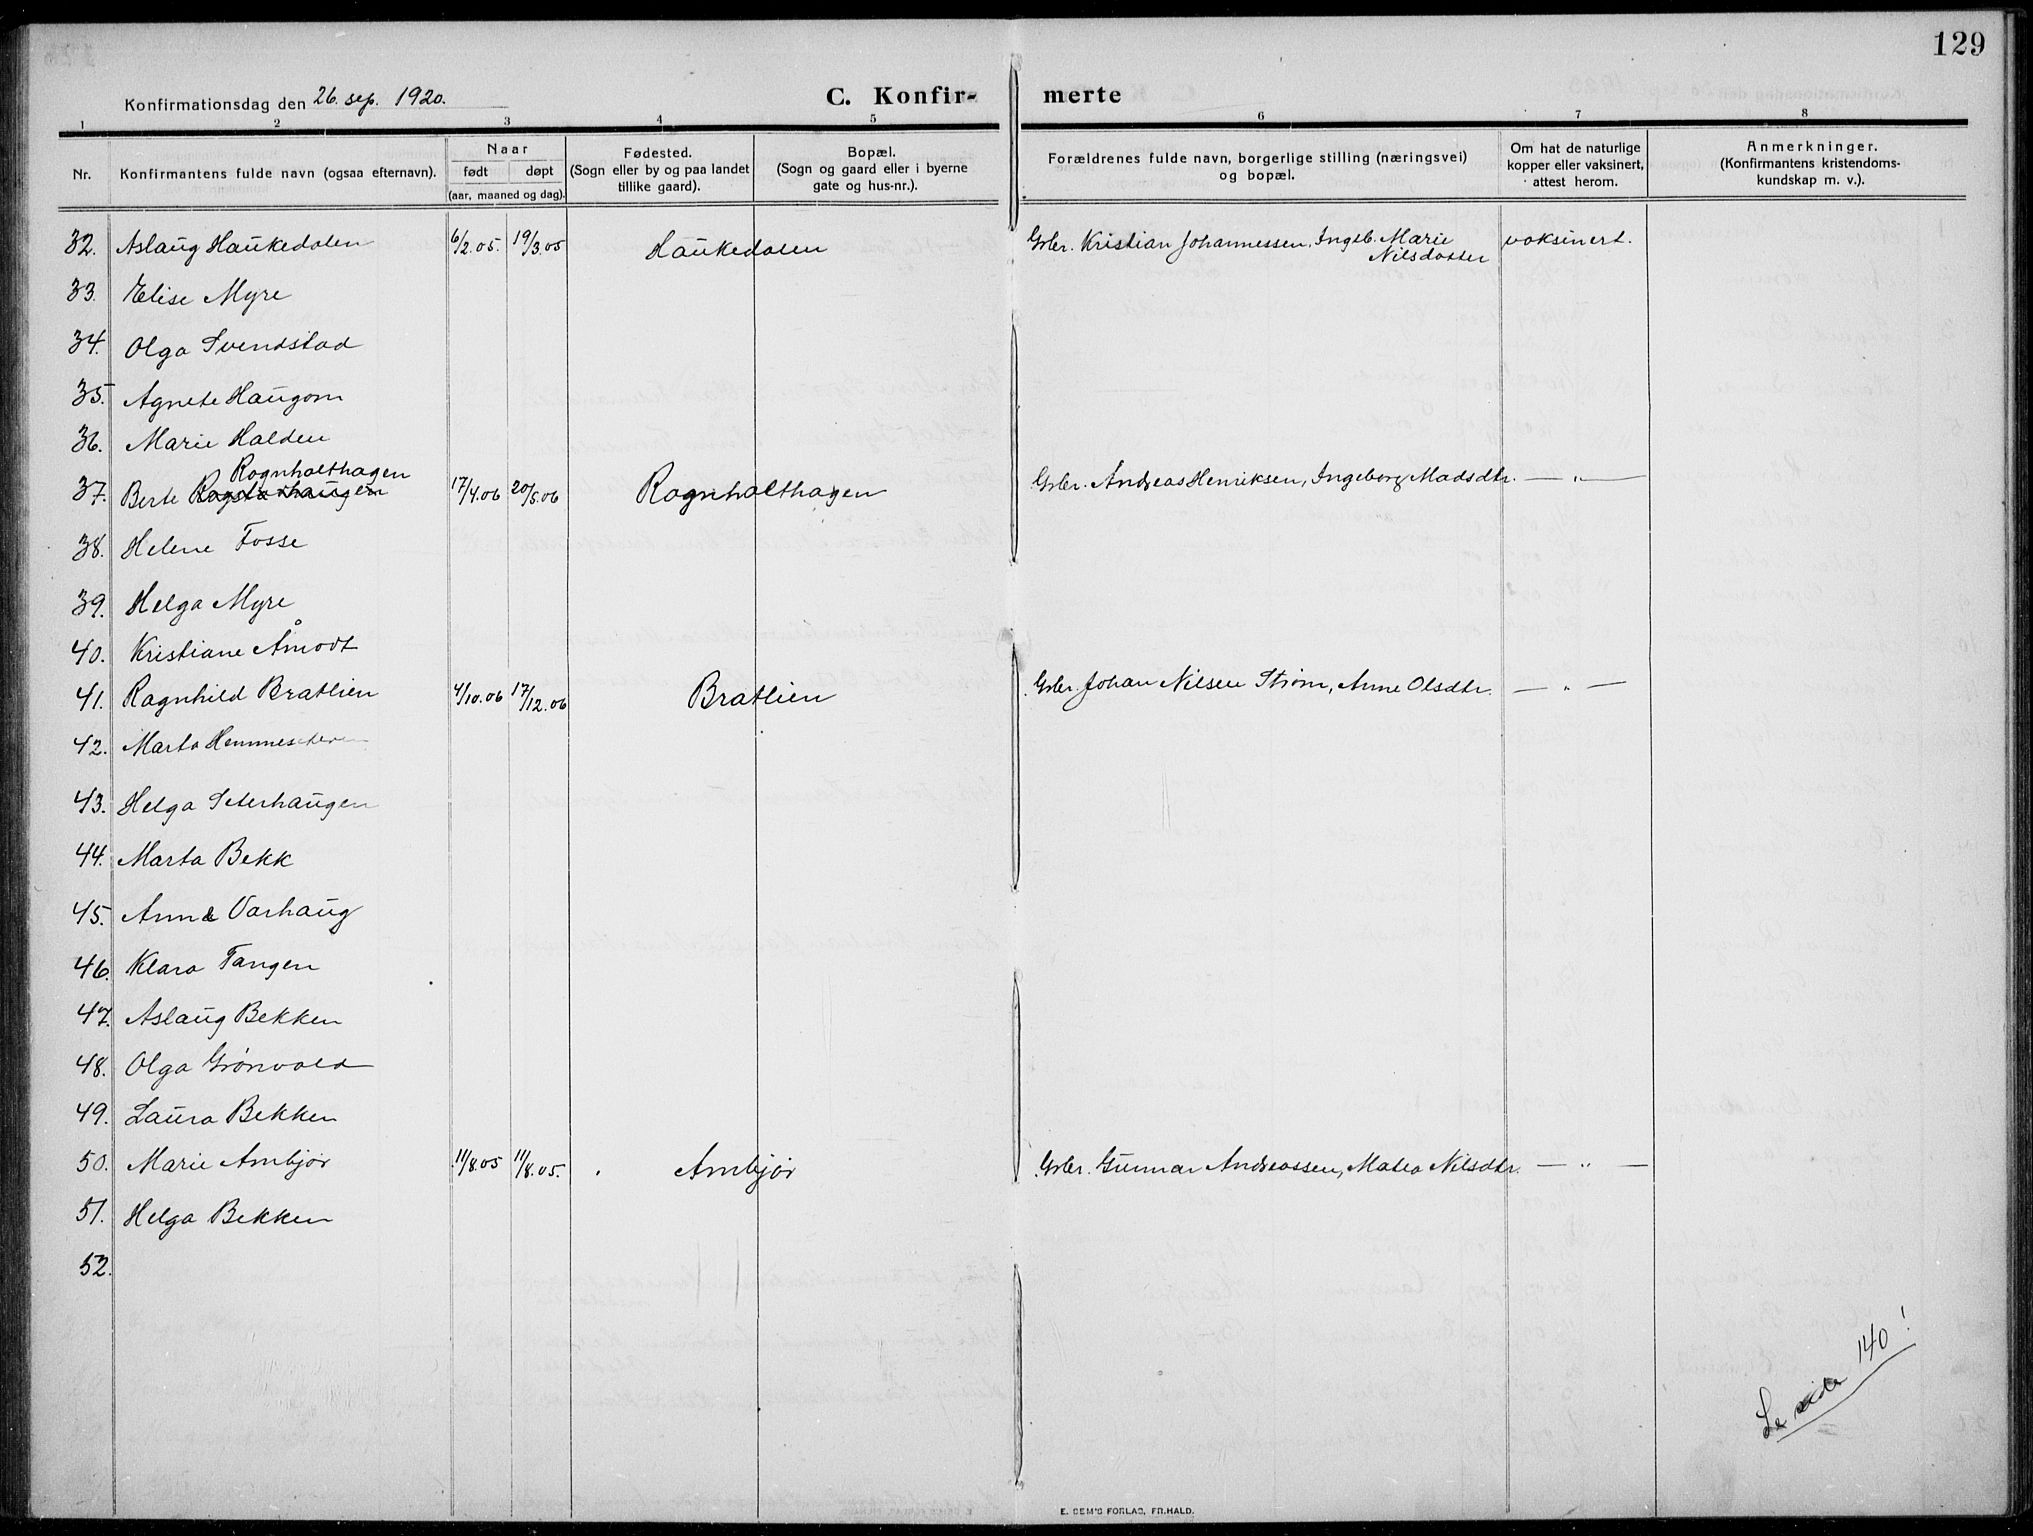 129
Konfirmationsdag den 26. sep. 1920. C. Konfir- merte
1 2 3 4 5 6 7 8
Nr. Konfirmantens fulde navn (ogsaa efternavn). Naar født døpt (aar, maaned og dag). Fødested. (Sogn eller by og paa landet tillike gaard). Bopæl. (Sogn og gaard eller i byerne gate og hus-nr.). Forældrenes fulde navn, borgerlige stilling (næringsvei) og bopæl. Om hat de naturlige kopper eller vaksinert, attest herom. Anmerkninger. (Konfirmantens kristendoms-kundskap m. v.).
32. Aslaug Haukedalen 6/2.05. 19/3.05 Haukedalen Grbr. Kristian Johannessen, Ingeb. Marie Nilsdatter vaksinert.
33. Elise Myre
34. Olga Svendstad
35. Agnete Haugom
36. Marie Halden
Rognhalthagen
37. Berte Rogstadhaugen 17/4.06 20/5.06 Rognhalthagen Grbr. Andreas Henriksen, Ingeborg Madsdtr. — " —
38. Helene Fosse
39. Helga Myre
40. Kristiane Åmodt
41. Ragnhild Bratlien 4/10.06 17/12.06 Bratlien Grbr. Johan Nilsen Strøm, Anne Olsdtr. — " —
42. Marta
43. Helga Seterhaugen
44. Marta Bekk
45. Anne Varhaug
46. Klara Tangen
47. Aslaug Bekken
48. Olga Grønvold
49. Laura Bekken
50. Marie Ambjør 11/8.05 11/8.05. Ambjør Grbr. Gunnar Andreassen, Matea Nilsdtr. — " —
51. Helga Bekken
52.
Se side 140!
E. SEM'S FORLAG, FR.HALD.